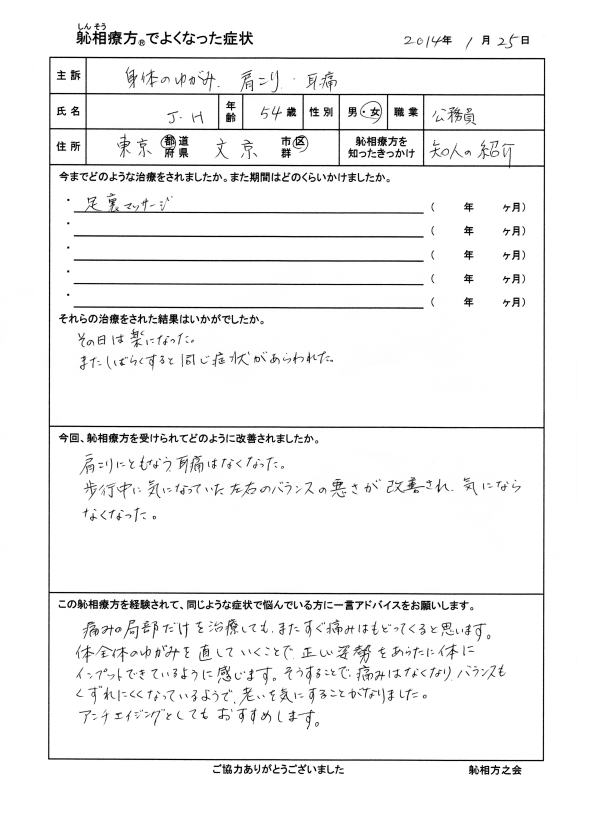 しんそう
恥相療方®でよくなった症状
2014年 1月 25日
主訴 身体のゆがみ、肩こり・耳痛
氏名 J・H 年齢 54歳 性別 男・女 職業 公務員
住所 東京 都道府県 文京 市区群 恥相療方を知ったきっかけ 知人の紹介
今までどのような治療をされましたか。また期間はどのくらいかけましたか。
・足裏マッサージ ( 年 ヶ月)
・ ( 年 ヶ月)
・ ( 年 ヶ月)
・ ( 年 ヶ月)
・ ( 年 ヶ月)
それらの治療をされた結果はいかがでしたか。
その日は楽になった。
またしばらくすると同じ症状があらわれた。
今回、恥相療方を受けられてどのように改善されましたか。
肩こりにともなう耳痛はなくなった。
歩行中に気になっていた左右のバランスの悪さが改善され、気になら
なくなった。
この恥相療方を経験されて、同じような症状で悩んでいる方に一言アドバイスをお願いします。
痛みの局部だけを治療しても、またすぐ痛みはもどってくると思います。
体全体のゆがみを直していくことで正しい姿勢をあらたに体に
インプットできているように感じます。そうすることで、痛みはなくなりバランスも
くずれにくくなっているようで、老いを気にすることがなりました。
アンチエイジングとしてもおすすめします。
ご協力ありがとうございました 恥相方之会